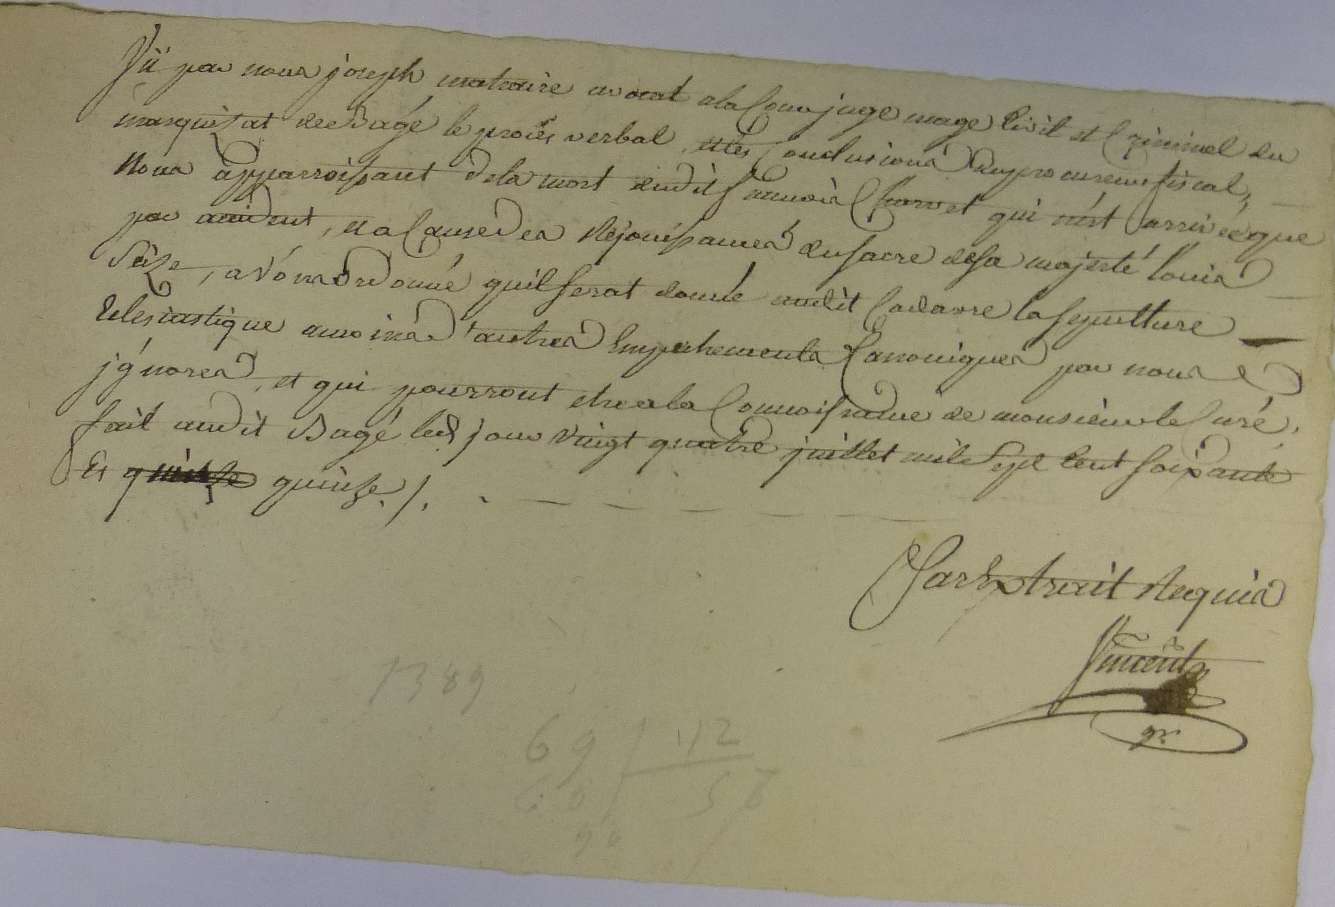 Vü par nous joseph matraire avocat ala Cour juge mage Civil et Criminel du
marquisat de Bagé le procès verbal, et les Conclusions du procureur fiscal,
Nous apparroissant de la mort dudit Chorvet qui n'est arrivée que
par accident, et a Cause des Rejouissances du sacre de sa majesté Louis
Seize, avons ordonné qu'il serat donné audit Cadavre la sepulture
Eclesiastique a moins d'autres Empechements Canoniques par nous
jgnorés, et qui pourront etre a la Connoissance de monsieur le Curé,
fait audit Bagé led jour vingt quatre juillet mile Sept Cent soixante
Et quinze ./.
Par Extrait Requis
Vincent
gr
1389
69 / 42
58